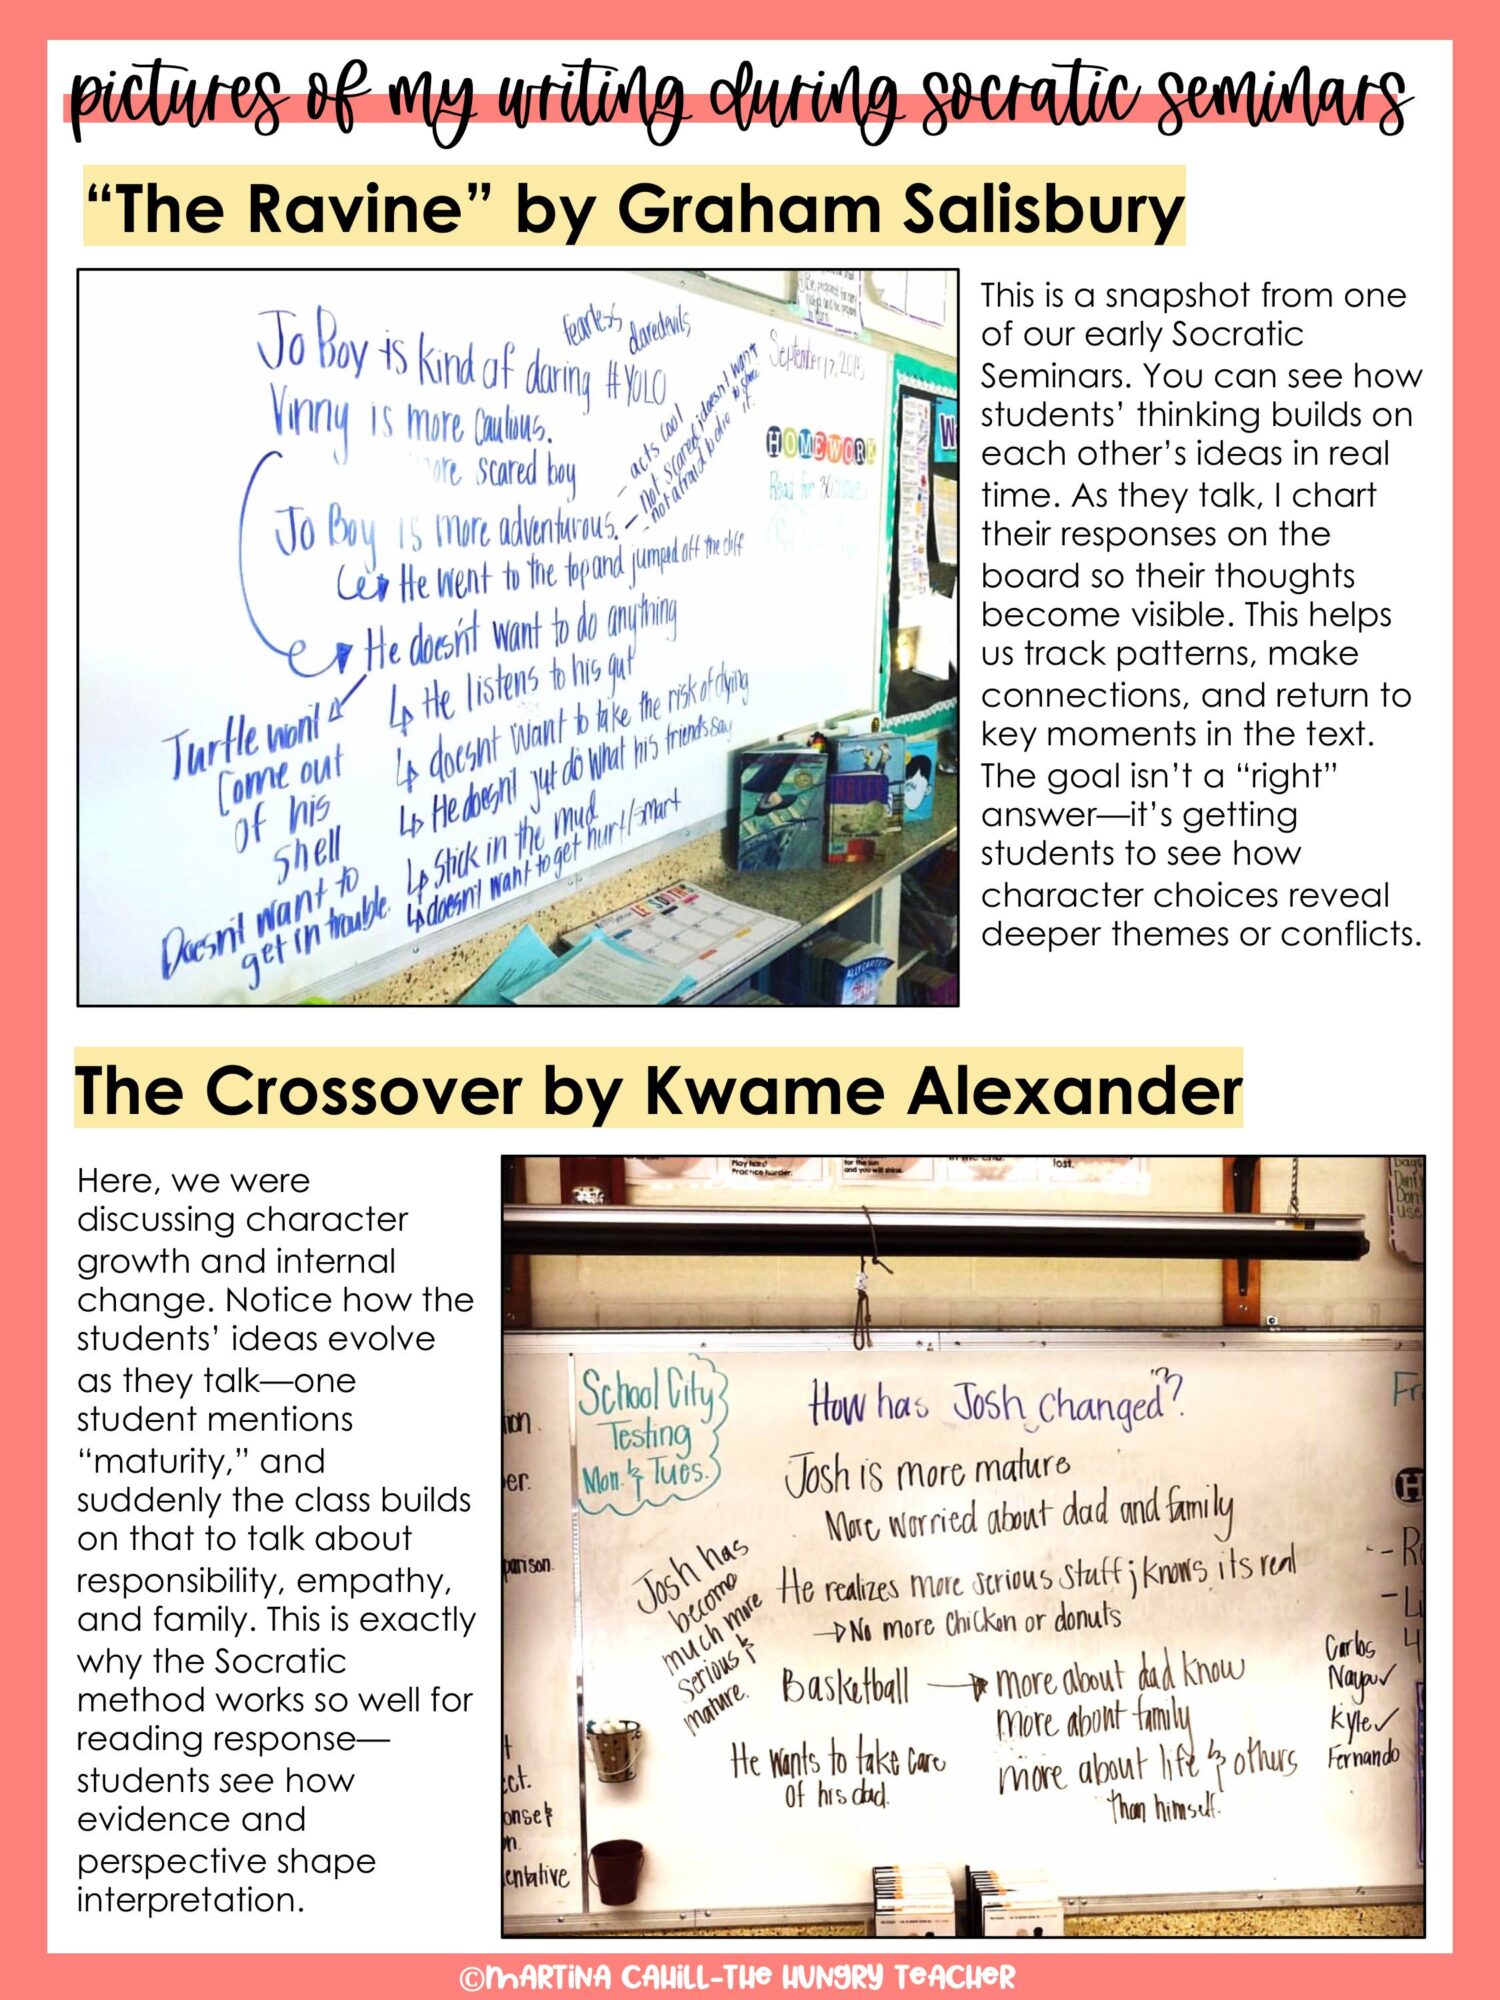 pictures of my writing during socratic seminars
“The Ravine” by Graham Salisbury
Jo Boy is kind of daring #YOLO
fearless
daredevils
Vinny is more cautious.
more scared boy
Jo Boy is more adventurous.
- acts cool
- not scared; doesn't want to show it.
- not afraid to die
He went to the top and jumped off the cliff
He doesn't want to do anything
He listens to his gut
doesnt want to take the risk of dying
He doesn't jut do what his friends say
Stick in the mud
doesn't want to get hurt/smart
Turtle wont
come out
of his
shell
Doesn't want to
get in trouble.
September 17, 2015
HOMEWORK
Read for 30 minutes
ALLY CARTER
This is a snapshot from one
of our early Socratic
Seminars. You can see how
students’ thinking builds on
each other’s ideas in real
time. As they talk, I chart
their responses on the
board so their thoughts
become visible. This helps
us track patterns, make
connections, and return to
key moments in the text.
The goal isn’t a “right”
answer—it’s getting
students to see how
character choices reveal
deeper themes or conflicts.
The Crossover by Kwame Alexander
Here, we were
discussing character
growth and internal
change. Notice how the
students’ ideas evolve
as they talk—one
student mentions
“maturity,” and
suddenly the class builds
on that to talk about
responsibility, empathy,
and family. This is exactly
why the Socratic
method works so well for
reading response—
students see how
evidence and
perspective shape
interpretation.
Play hard
Practice harder.
for the sun
and you will shine.
lost.
School City
Testing
Mon. & Tues.
How has Josh changed?
Josh is more mature
More worried about dad and family
He realizes more serious stuff; knows its real
No more chicken or donuts
Josh has
become
much more
serious &
mature.
Basketball
more about dad know
more about family
more about life & others
than himself.
He wants to take care
of his dad.
Carlos
Naya
Kyle
Fernando
©Martina Cahill-The Hungry Teacher